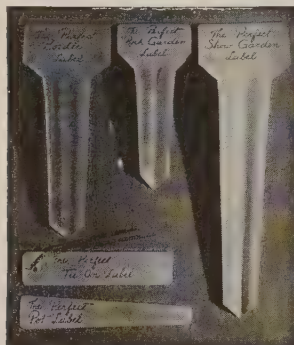 The Perfect
Label
The Perfect
Rock Garden
Label
The Perfect
Show Garden
Label
The Perfect
Tie-On Label
The Perfect
Pot Label